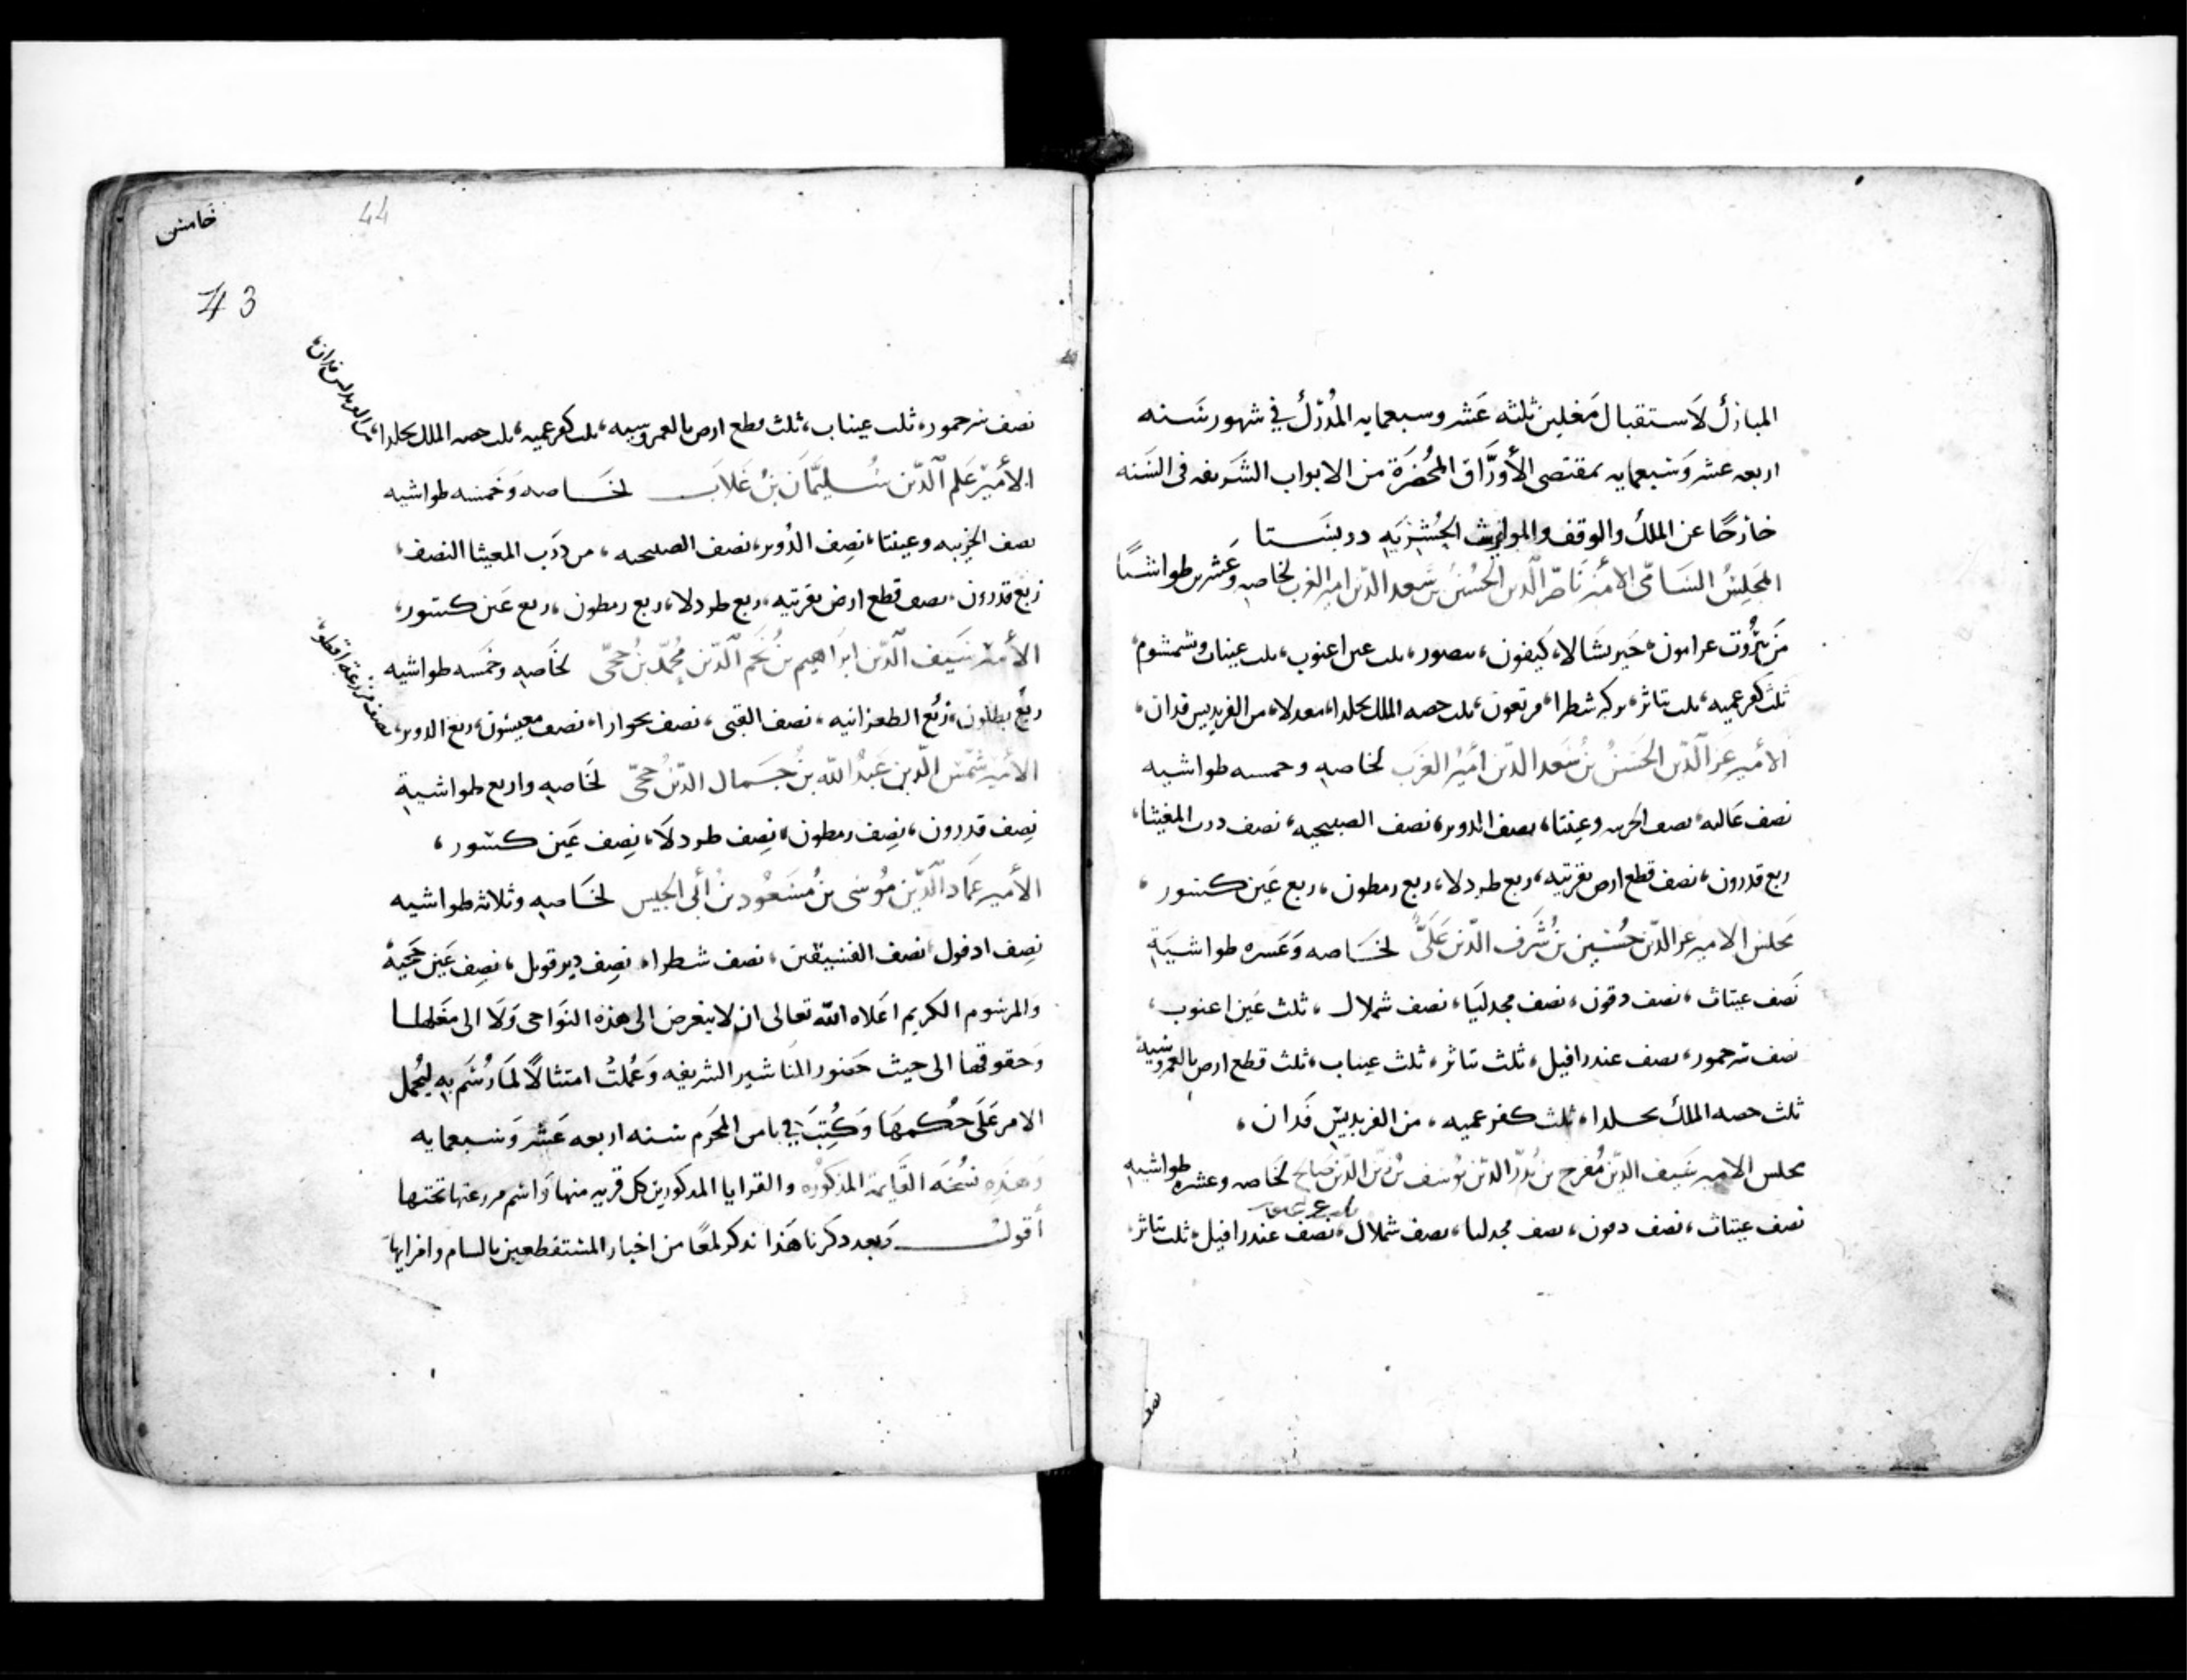 المبارك لاستقبال مغلين ثلثه عشر وسبعمايه المدرك في شهور سنه
اربعه عشر وسبعمايه بمقتضى الأوراق المحضرة من الابواب الشريفه فى السنه
خارجًا عن الملك والوقف والمواريث الجشريه دربستا
المجلس السامى الامير ناصر الدين الحسين بن سعد الدين امير الغرب لخاصه وعشرين طواشيًا
من بيروت عرامون، كيفون، ثلث عين اعنوب، ثلث عيناب وشمشوم،
ثلث كفرعميه، ثلث تاثر، بركه شطرا، مرتعون، ثلث حصه الملك بحلدا، معدلا، من الفريديس فدان،
الأمير عز الدين الحسن بن سعد الدين أمير الغرب لخاصه وخمسه طواشيه
نصف عاليه، نصف الخريبه وعينتا، نصف الدوير، نصف الصبيحيه، نصف درب المغيثا،
ربع قدرون، نصف قطع ارض بقرتيه، ربع طردلا، ربع رمطون، ربع عين كسور،
مجلس الامير عز الدين حسين بن شرف الدين على لخاصه وعشره طواشية
نصف عيتاث، نصف دقون، نصف مجدليا، نصف شملال، ثلث عين اعنوب،
نصف سرحمور، نصف عندرافيل، ثلث تاثر، ثلث عيناب، ثلث قطع ارض بالعمروسية
ثلث حصه الملك بحلدا، ثلث كفرعميه، من الفريديس فدان،
مجلس الامير سيف الدين مفرج بن بدر الدين يوسف بن زين الدين صالح لخاصه وعشره طواشيه
نصف عيتاث، نصف دقون، نصف مجدليا، نصف شملال، نصف عندرافيل، ثلث تاثر،
نصف
خامس
44
43
نصف سرحمور، ثلث عيناب، ثلث قطع ارض بالعمروسيه، ثلث كفرعميه، ثلث حصه الملك بحلدا،
من الفريديس فدان،
الأمير علم الدين سليمان بن غلاب لخاصه وخمسه طواشيه
نصف الخريبه وعينتا، نصف الدوير، نصف الصبيحيه، من درب المغيثا النصف،
ربع قدرون، نصف قطع ارض بقرتيه، ربع طردلا، ربع رمطون، ربع عين كسور،
الأمير سيف الدين ابراهيم بن نجم الدين محمد بن حجى لخاصه وخمسه طواشيه
ربع بطلون، ربع الطعزانيه، نصف القبى، نصف بحوارا، نصف معيسون، ربع الدوير،
نصف مزرعة افطو،
الأمير شمس الدين عبد الله بن جمال الدين حجى لخاصه واربع طواشية
نصف قدرون، نصف رمطون، نصف طردلا، نصف عين كسور،
الأمير عماد الدين موسى بن مسعود بن أبى الجيس لخاصه وثلاثه طواشيه
نصف ادفول، نصف الفنسيقين، نصف شطرا، نصف دير قوبل، نصف عين حجية
والمرسوم الكريم اعلاه الله تعالى ان لا يتعرض الى هذه النواحى ولا الى مغلها
وحقوقها الى حيث حضور المناشير الشريفه وعملت امتثالًا لما رسم به ليحمل
الامر على حكمها وكتب في ثامن المحرم سنه اربعه عشر وسبعمايه
وهذه نسخه القايمة المذكوره والقرايا المذكورين كل قريه منها واسم مزرعتها تحتها
أقول وبعد ذكرنا هذا نذكر لمعًا من اخبار المستقطعين بالسام وافرايها